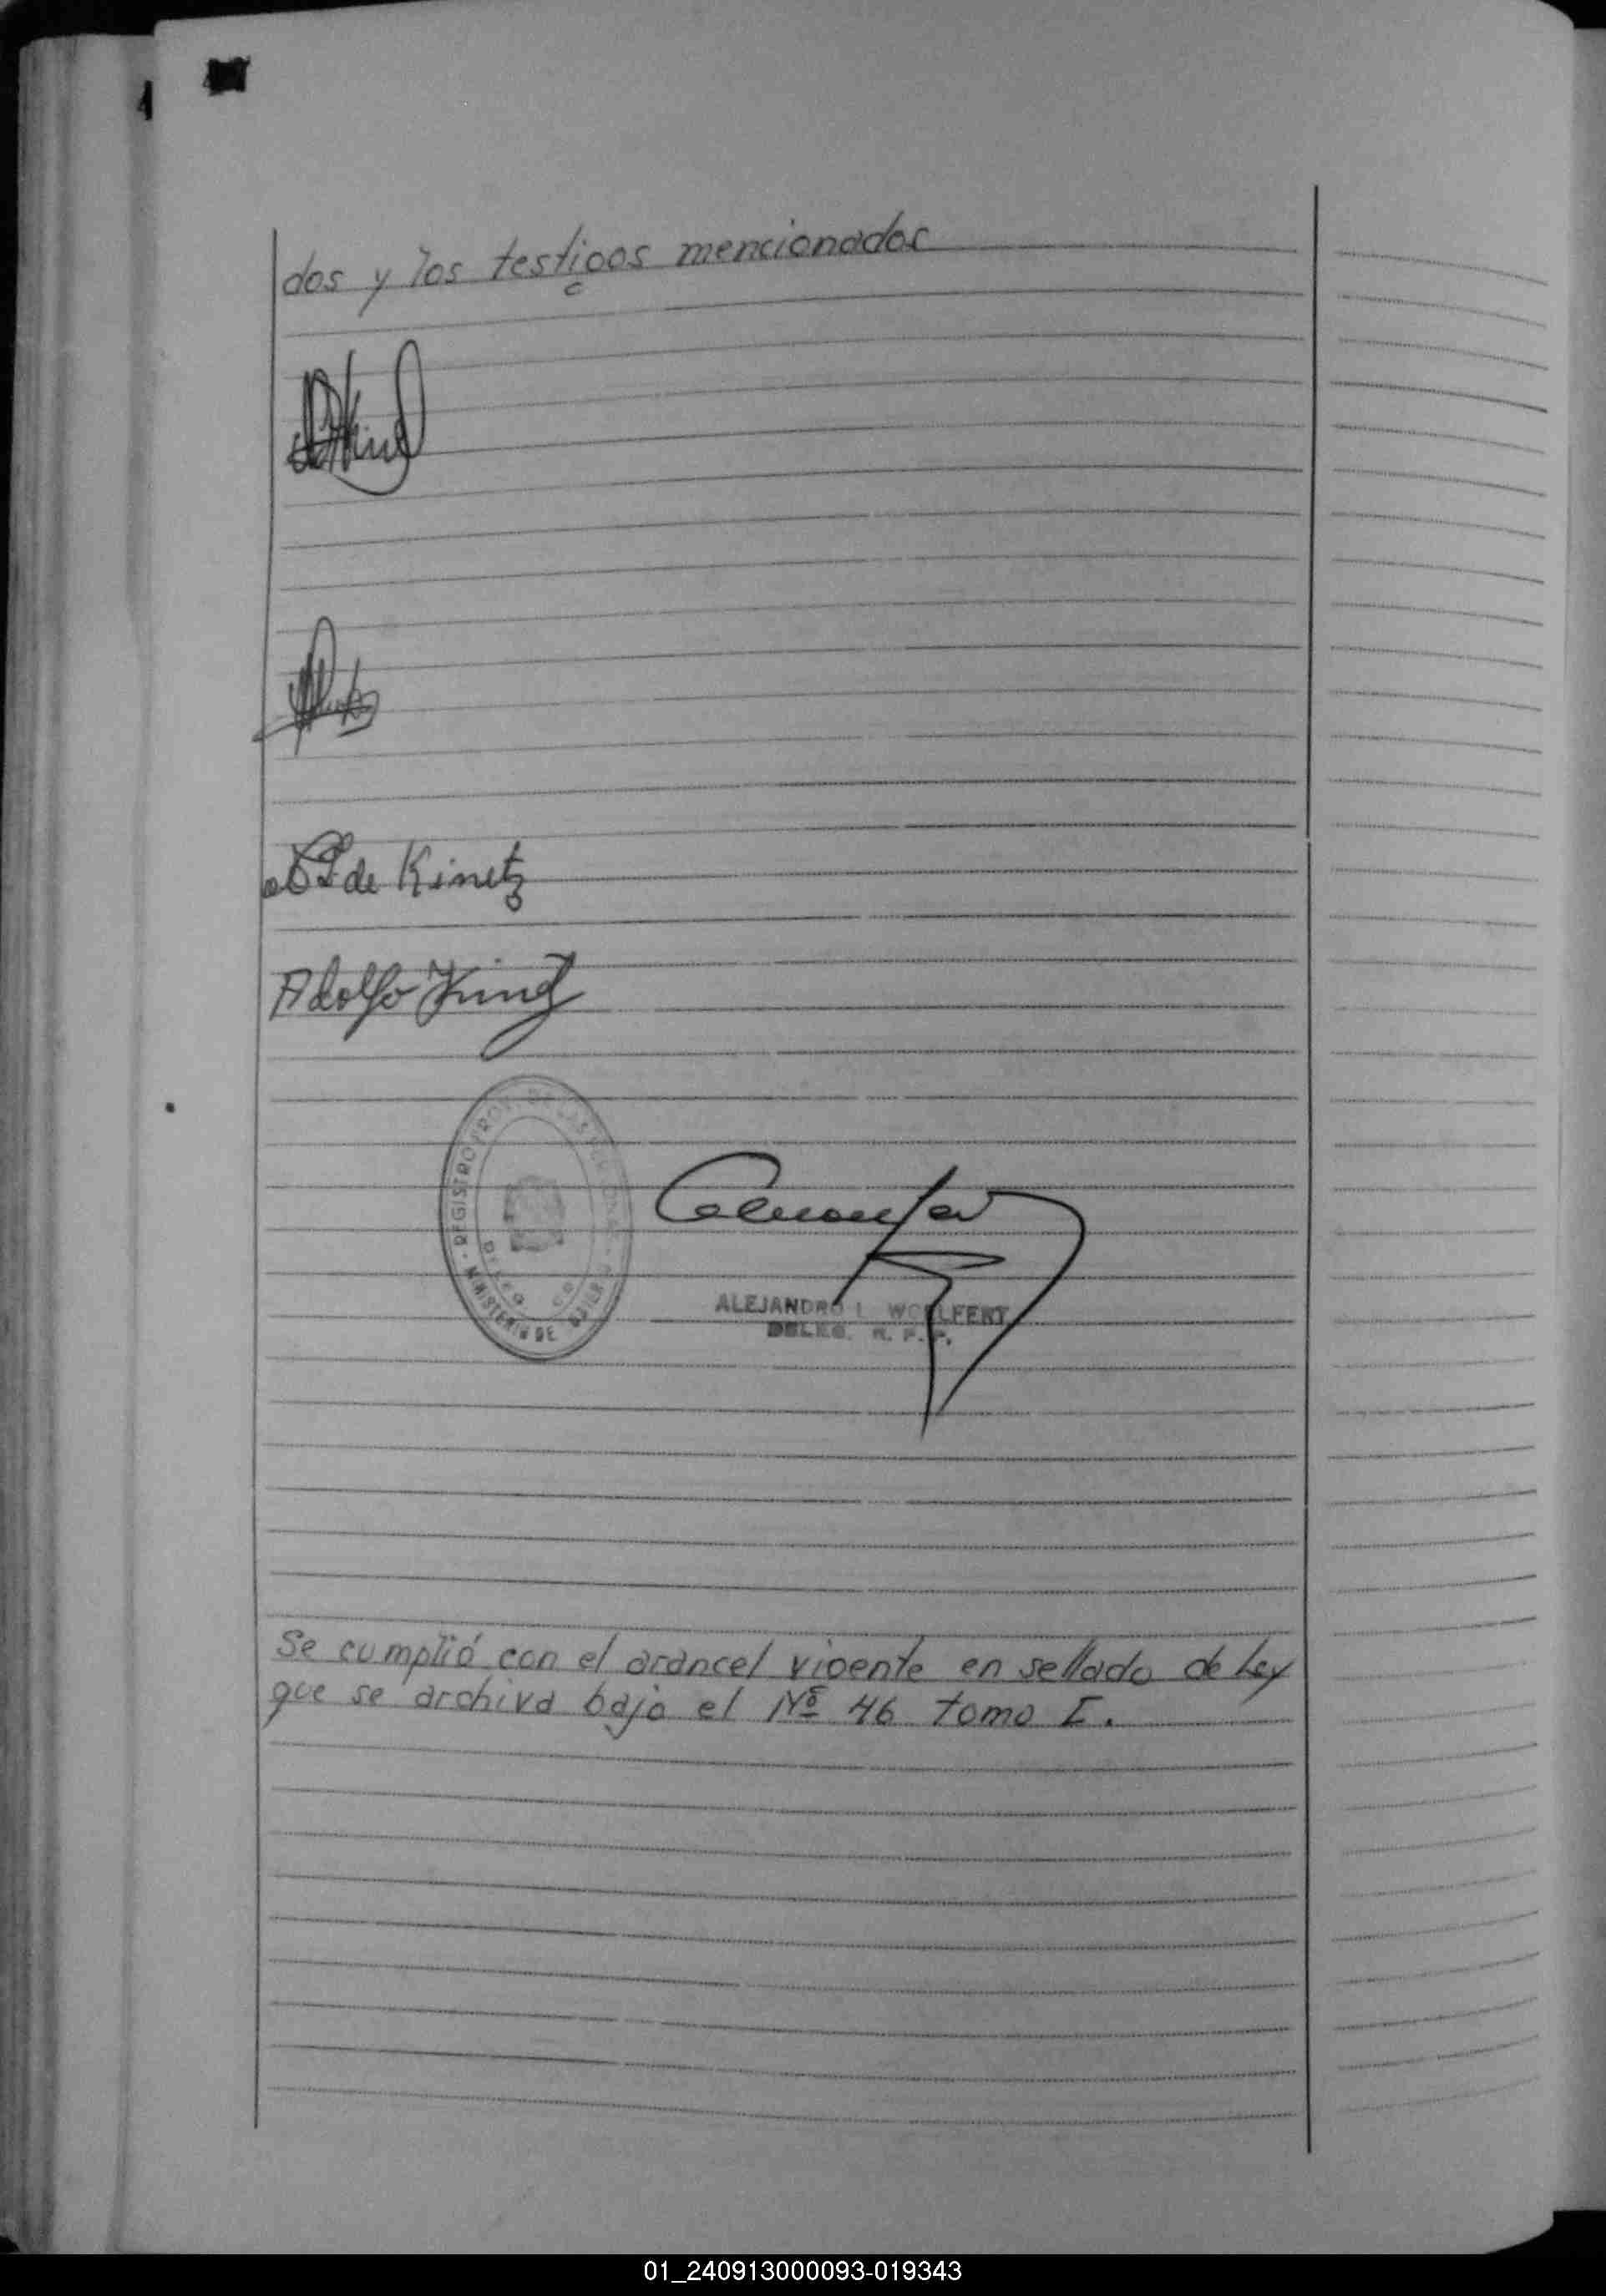 dos y los testigos mencionados
de Kinetz
Adolfo
REGISTRO PROV. DE LAS PERSONAS
MINISTERIO DE
DELEG.
ALEJANDRO L. WOLFERT
DELEG. R. P. P.
Se cumplió con el arancel vigente en sellado de Ley
que se archiva bajo el Nº 46 tomo I.
01_240913000093-019343